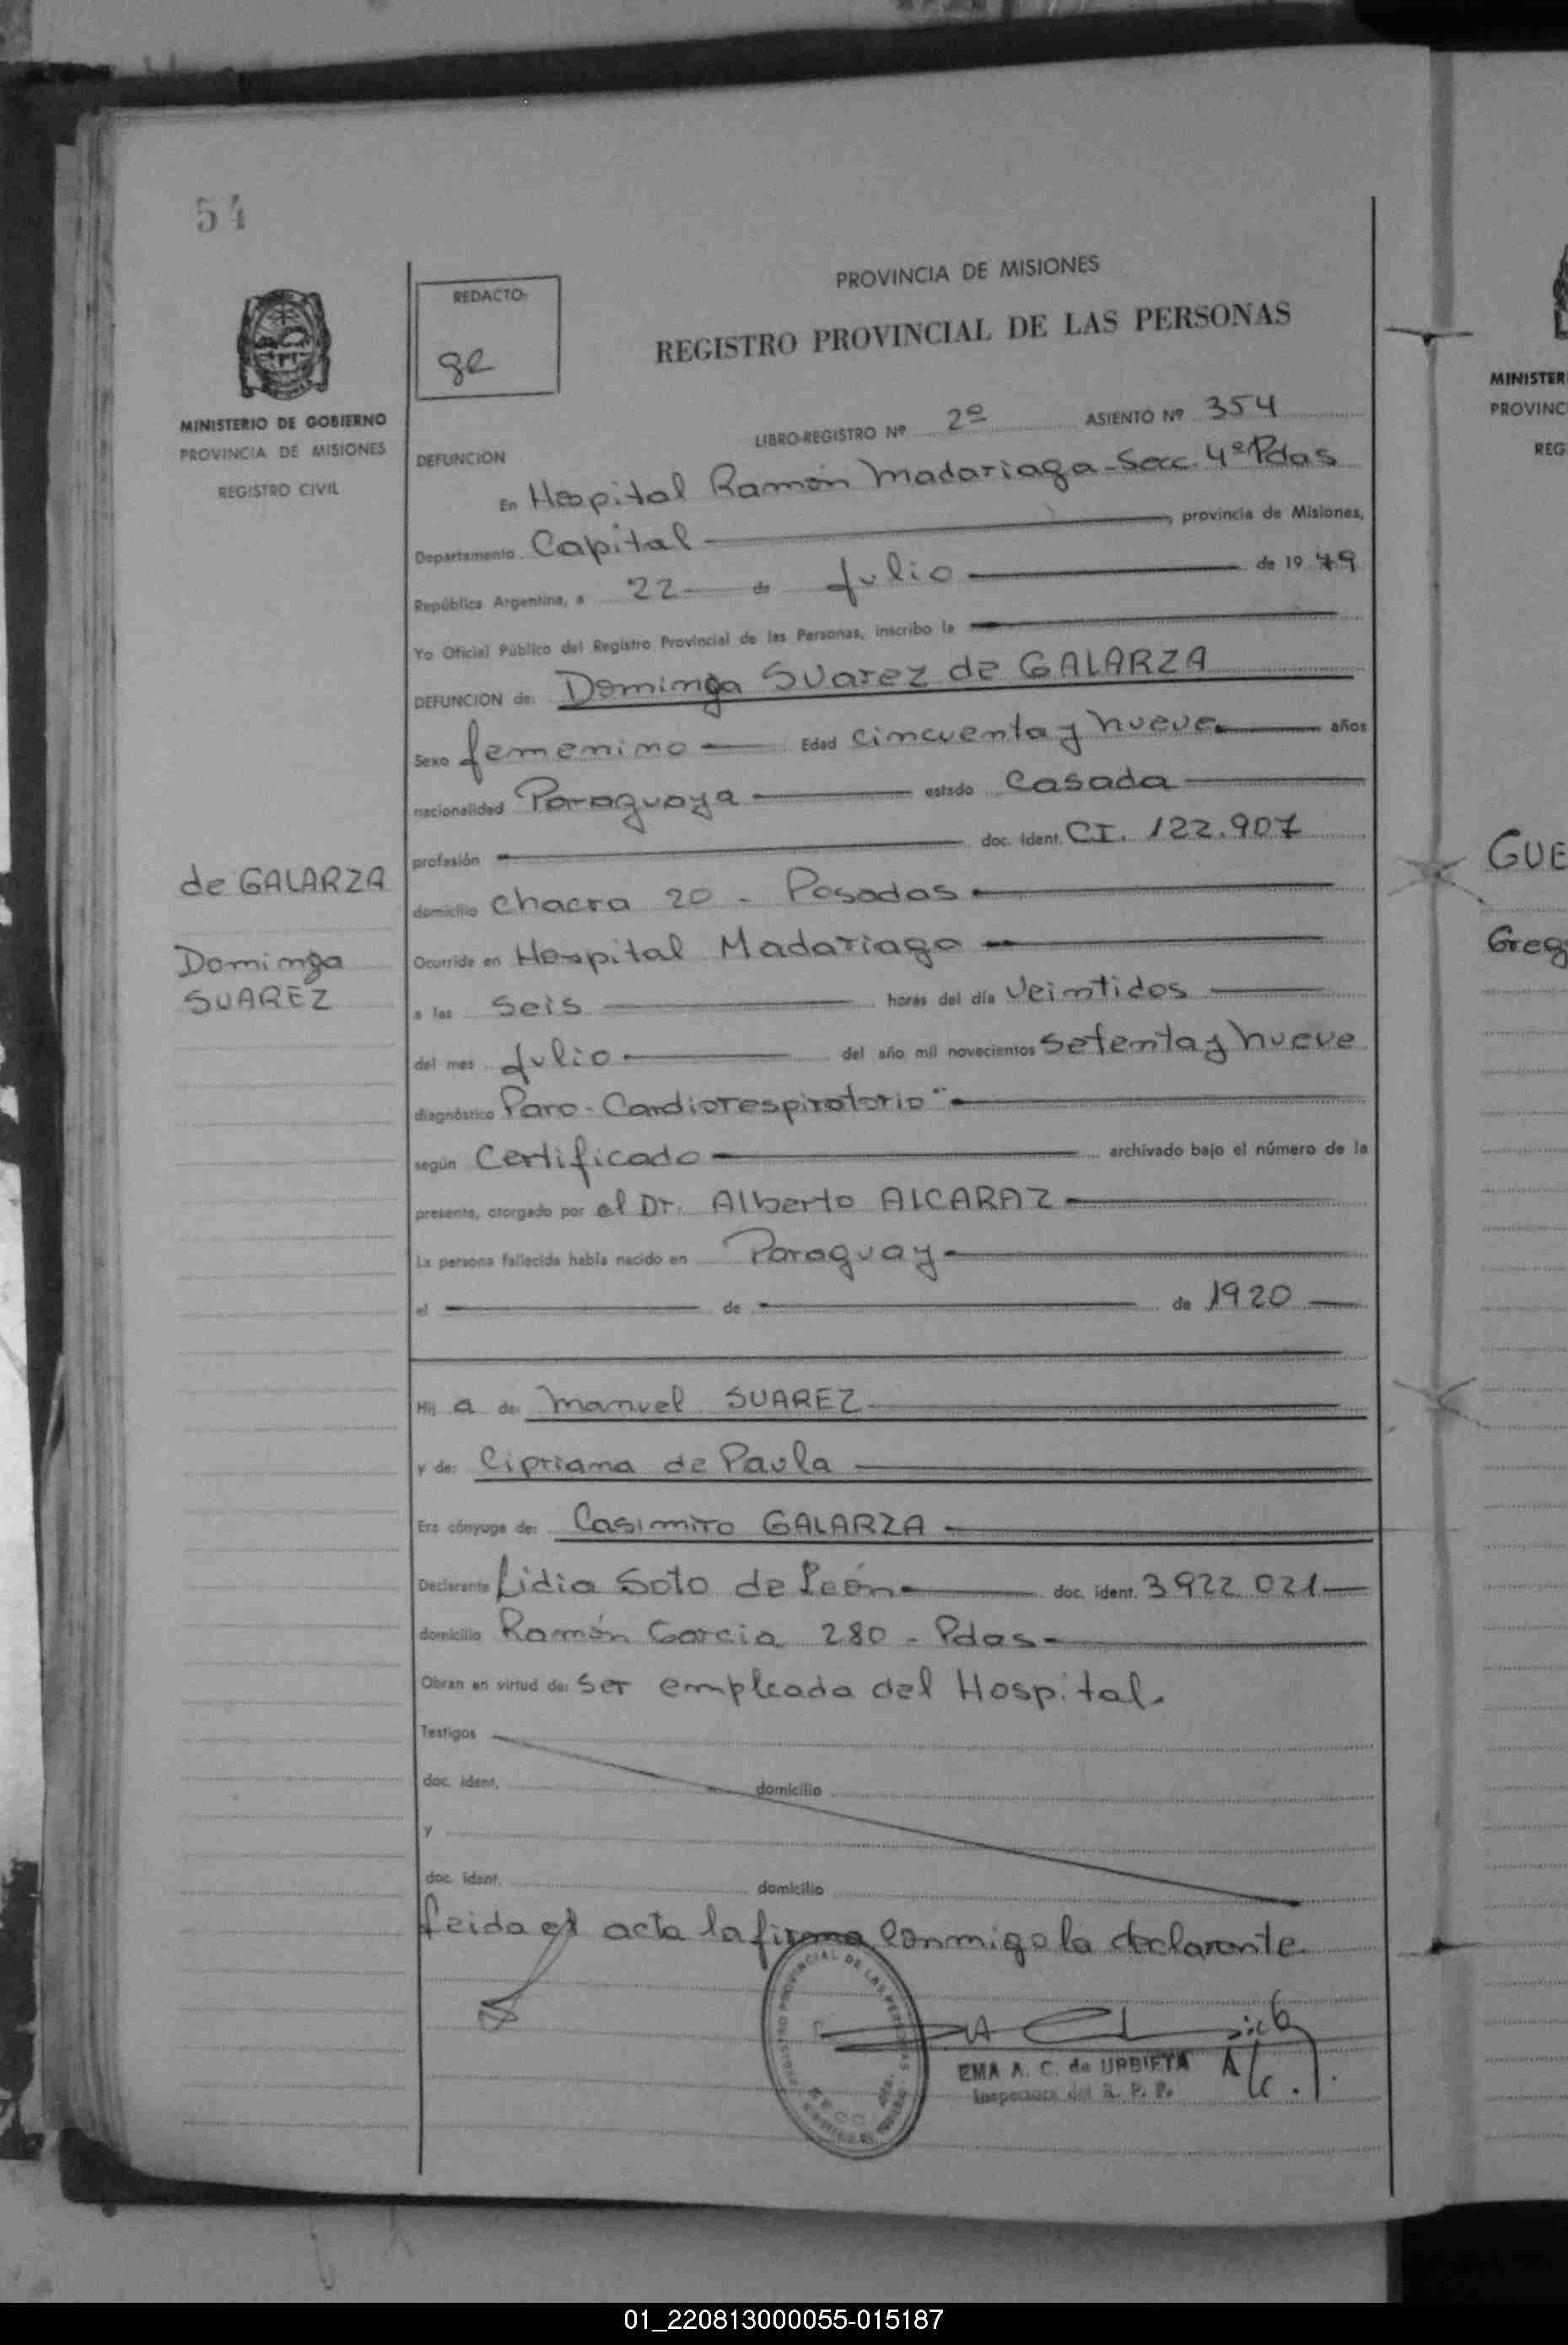 54
MINISTERIO DE GOBIERNO
PROVINCIA DE MISIONES
REGISTRO CIVIL
REDACTO:
ge
PROVINCIA DE MISIONES
REGISTRO PROVINCIAL DE LAS PERSONAS
LIBRO-REGISTRO Nº 2º ASIENTO Nº 354
DEFUNCION
En Hospital Ramón Madariaga - Secc. 4º Pdas
Departamento Capital, provincia de Misiones,
República Argentina, a 22 de Julio de 1979
Yo Oficial Público del Registro Provincial de las Personas, inscribo la
DEFUNCION de: Dominga Suarez de GALARZA
Sexo femenino Edad cincuenta y nueve años
nacionalidad Paraguaya estado Casada
profesión doc. ident. CI. 122.907
de GALARZA
domicilio Chacra 20 - Posadas
Dominga
SUAREZ
Ocurrida en Hospital Madariaga
a las Seis horas del día Veintidos
del mes Julio del año mil novecientos setenta y nueve
diagnóstico Paro - Cardiorespiratorio"
según Certificado archivado bajo el número de la
presente, otorgado por el Dr. Alberto ALCARAZ
La persona fallecida había nacido en Paraguay
el de de 1920
Hij a de: Manuel SUAREZ
y de: Cipriana de Paula
Era cónyuge de: Casimiro GALARZA
Declarante Lidia Soto de León doc. ident. 3922.021
domicilio Ramón Garcia 280 - Pdas
Obran en virtud de: Ser empleada del Hospital.
Testigos
doc. ident. domicilio
y
doc. ident. domicilio
Leida el acta la firma conmigo la declarante
REGISTRO PROVINCIAL DE LAS PERSONAS
EMA A. C. de URBIETA
Inspectora del R. P. P.
MINISTER
PROVINC
REG
GUE
Greg
01_220813000055-015187